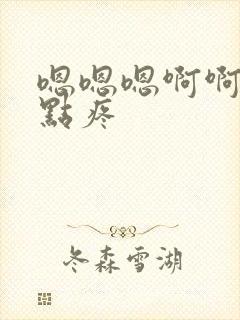 嗯嗯嗯啊啊
點疼
冬森雪湖